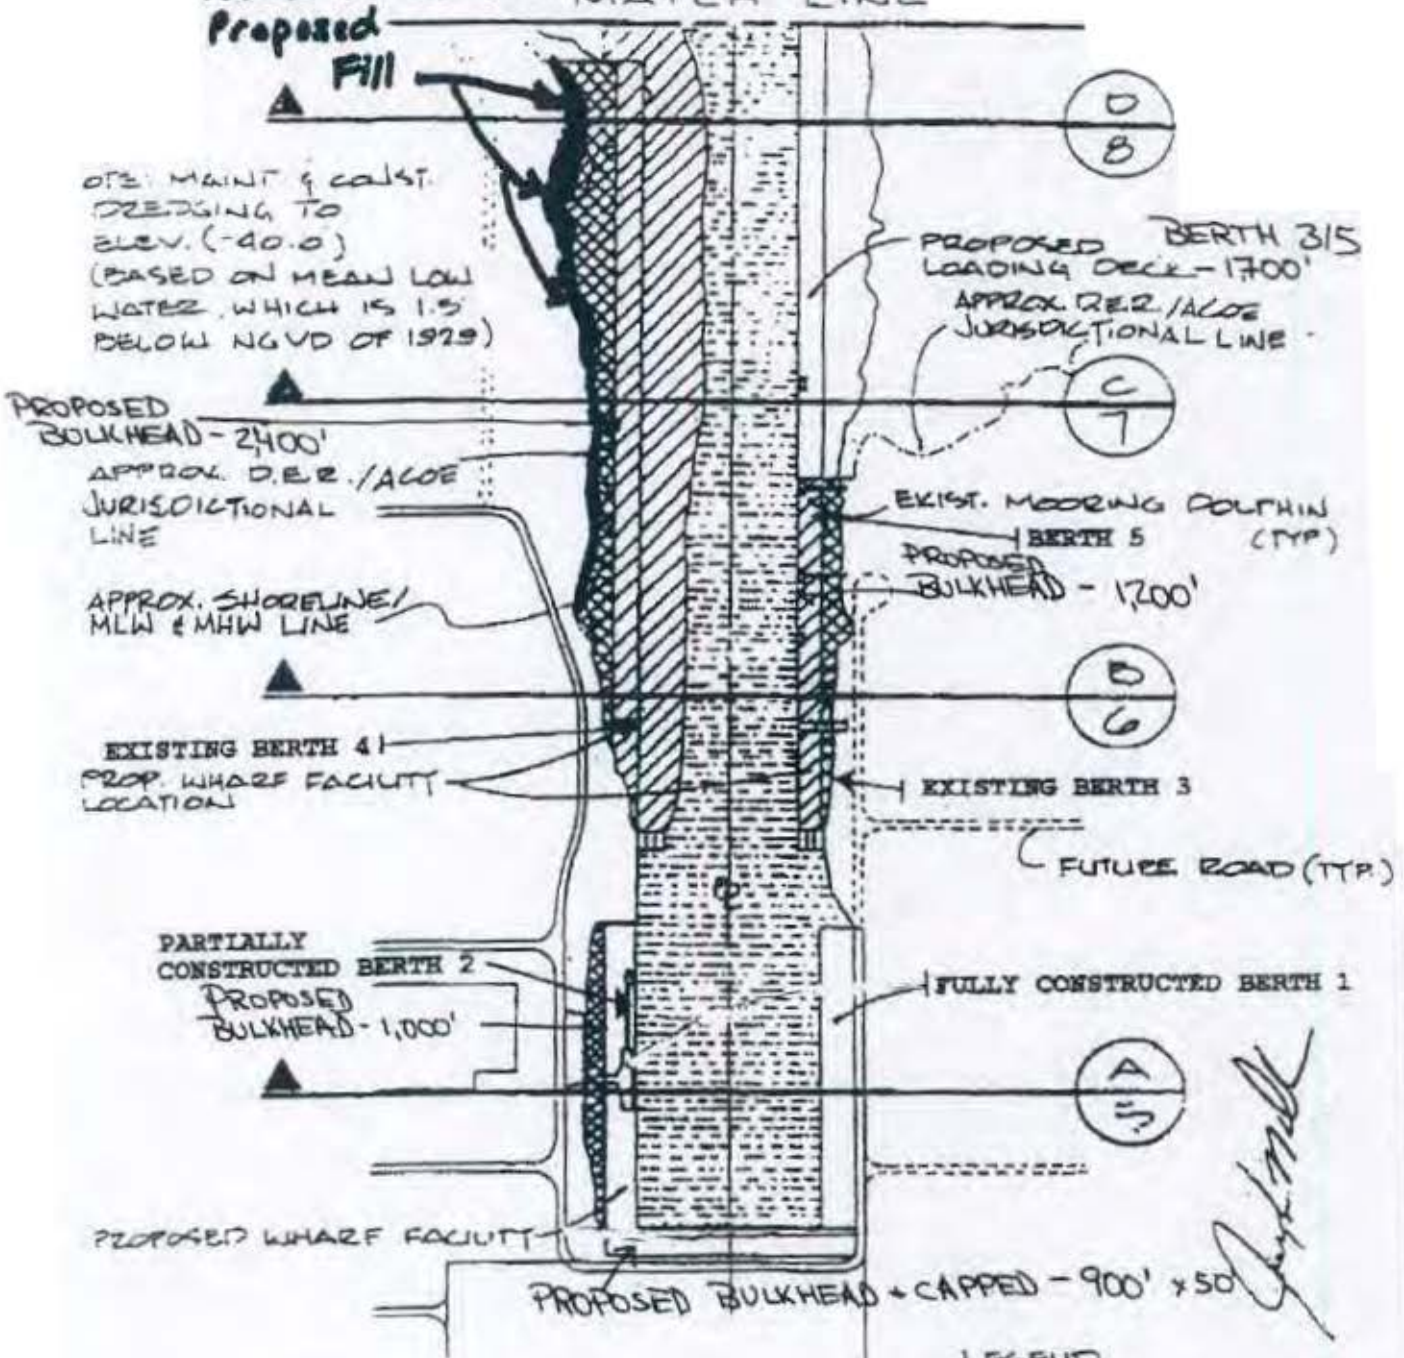 MATCH LINE
Proposed
Fill
D
8
OTE: MAINT & CONST.
DREDGING TO
ELEV. (-40.0)
(BASED ON MEAN LOW
WATER, WHICH IS 1.5
BELOW NGVD OF 1929)
PROPOSED BERTH 3/5
LOADING DECK - 1700'
APPROX. D.E.R./ACOE
JURISDICTIONAL LINE
C
7
PROPOSED
BULKHEAD - 2,400'
APPROX. D.E.R./ACOE
JURISDICTIONAL
LINE
EXIST. MOORING DOLPHIN
(TYP)
BERTH 5
PROPOSED
BULKHEAD - 1,200'
APPROX. SHORELINE/
MLW & MHW LINE
B
6
EXISTING BERTH 4
PROP. WHARF FACILITY
LOCATION
EXISTING BERTH 3
FUTURE ROAD (TYP.)
PARTIALLY
CONSTRUCTED BERTH 2
PROPOSED
BULKHEAD - 1,000'
FULLY CONSTRUCTED BERTH 1
A
5
PROPOSED WHARF FACILITY
PROPOSED BULKHEAD + CAPPED - 900' x 50'
LEGEND